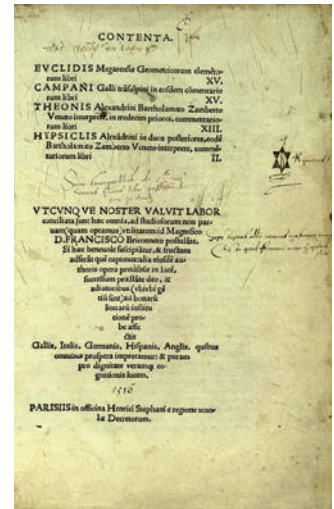 CONTENTA.
EVCLIDIS Megarensis Geometricorum elemēto-
rum libri XV.
CAMPANI Galli trāsalpini in eosdem cōmentario
rum libri XV.
THEONIS Alexandrini Bartholamæo Zamberto
Veneto interprete, in tredecim priores, commentario-
rum libri XIII.
HYPSICLIS Alexādrini in duos posteriores, eodē
Bartholamæo Zamberto Veneto interprete, commē-
tariorum libri II.
VTCVNQVE NOSTER VALVIT LABOR
conciliata sunt hæc omnia, ad studiosorum non par-
uam (quam optamus) vtilitatem: id Magnifico
D. FRANCISCO Briconneto postulāte.
Si hæc beneuole suscipiātur, & fructum
adferāt quē cupimus: alia eiusdē au-
thoris opera prodibūt in lucē,
successum præstāte deo, &
adiutoribus (vbi vbi gē
tiū sint) ad bonarū
literarū institu
tionē pro-
be affe
ctis
Gallis, Italis, Germanis, Hispanis, Anglis. quibus
omnibus prospera imprecamur: & puram
pro dignitate veramq; co-
gnitionis lucem.
1516
PARISIIS in officina Henrici Stephani e regione scho-
læ Decretorum.